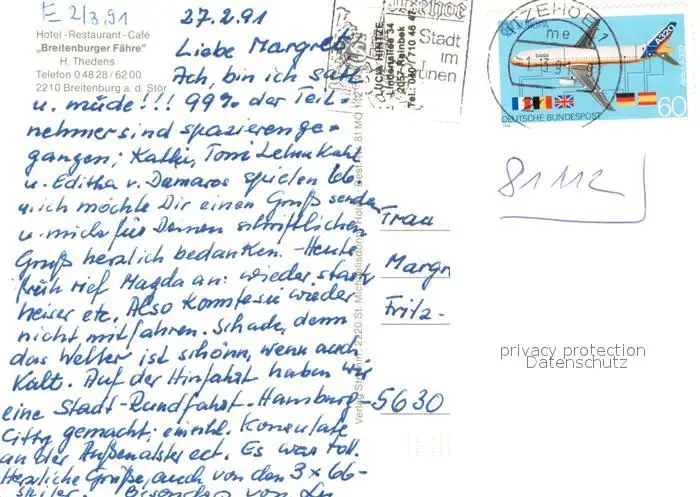 E 2/3.91
27.2.91
Hotel-Restaurant-Café
„Breitenburger Fähre"
H. Thedens
Telefon 0 48 28 / 62 00
2210 Breitenburg a. d. Stör
Liebe Margret!
Ach, bin ich satt
u. müde!!! 99% der Teil-
nehmer sind spazierenge-
gangen; Kathi, Toni Lehmkahl
u. Editha v. Damaros spielen 66
u. ich möchte Dir einen Gruß senden
u. mich für Deinen schriftlichen
Gruß herzlich bedanken. - Heute
früh rief Magda an: wieder stark
heiser etc. Also konnte sie wieder
nicht mitfahren. Schade, denn
das Wetter ist schön, wenn auch
kalt. Auf der Hinfahrt haben wir
eine Stadt-Rundfahrt-Hamburg-
City gemacht; einschl. Konsulate
an der Außenalster ect. Es war toll.
Herzliche Grüße, auch von den 3 x 66-
LUCIA HINTZE
Lindenallee 34
2057 Reinbek
Tel.: 040 / 710 46 47
Stadt
im
Grünen
ITZEHOE 1
me
EUROPA
A320
Airbus A320
60
DEUTSCHE BUNDESPOST
81112
Frau
Margr
Fritz-
5630
privacy protection
Datenschutz